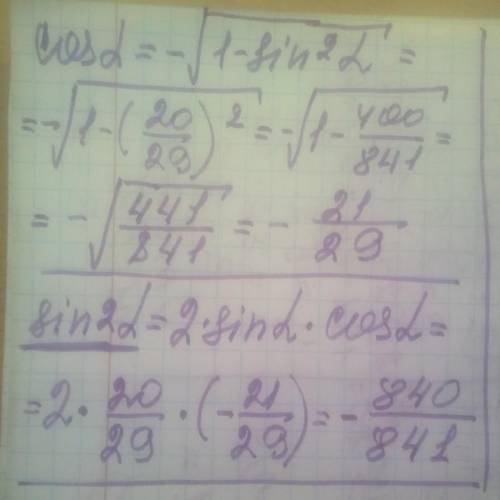 cosα = -√(1-sin²α) =
= -√(1-(20/29)²) = -√(1-400/841) =
= -√(441/841) = - 21/29
sin2α = 2·sinα·cosα =
= 2·20/29·(-21/29) = - 840/841